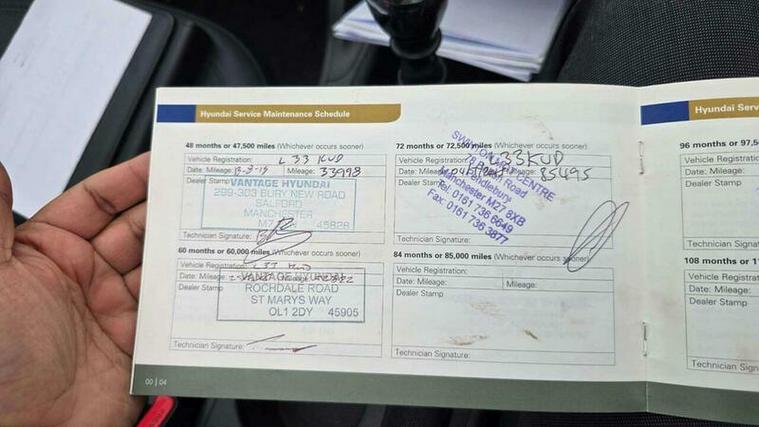 Hyundai Service Maintenance Schedule
48 months or 47,500 miles (Whichever occurs sooner)
Vehicle Registration: L33 KUD
Date: Mileage: Mileage: 33998
Dealer Stamp
VANTAGE HYUNDAI
299-303 BURY NEW ROAD
SALFORD
MANCHESTER
M7 45828
Technician Signature:
60 months or 60,000 miles (Whichever occurs sooner)
Vehicle Registration:
Date: Mileage:
Dealer Stamp
VANTAGE HYUNDAI
ROCHDALE ROAD
ST MARYS WAY
OL1 2DY 45905
Technician Signature:
00 | 04
72 months or 72,500 miles (Whichever occurs sooner)
Vehicle Registration: L33KUD
Date: Mileage: 85495
Dealer Stamp
SWINTON CENTRE
78 Road
Pendlebury
Manchester M27 6XB
Tel: 0161 736 6649
Fax: 0161 736 3877
Technician Signature:
84 months or 85,000 miles (Whichever occurs sooner)
Vehicle Registration:
Date: Mileage: Mileage:
Dealer Stamp
Technician Signature:
Hyundai Serv
96 months or 97,5
Vehicle Registration
Date: Mileage:
Dealer Stamp
Technician Signat
108 months or 11
Vehicle Registrat
Date: Mileage:
Dealer Stamp
Technician Sign